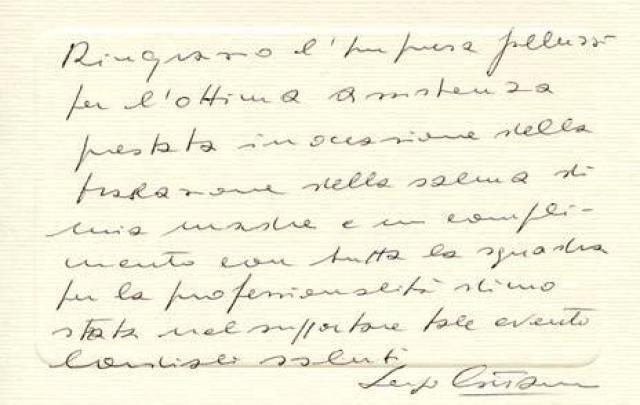 Ringrazio l'Impresa
per l'ottima assistenza
prestata in occasione della
traslazione della salma di
mia madre e un compli-
mento con tutta la squadra
per la professionalità dimo
strata nel supportare tale evento
Cordiali saluti